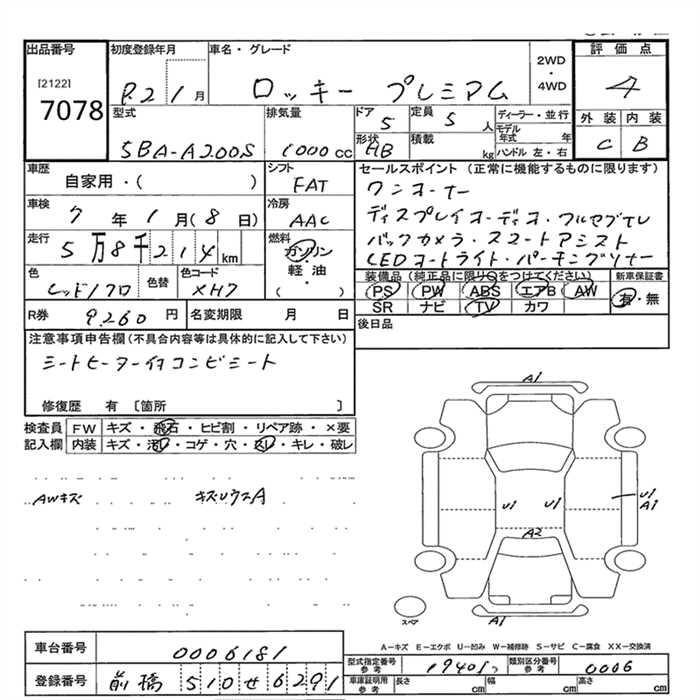 出品番号 初度登録年月 車名・グレード 評価点
[2122]
7078
R.2 1月 ロッキー プレミアム 2WD・4WD 4
型式 排気量 ドア 定員 ディーラー・並行 外装 内装
5BA-A200S 1000cc 5 5人 モデル年式 年 C B
形状 HB 積載 kg ハンドル 左・右
車歴 シフト セールスポイント(正常に機能するものに限ります)
自家用・( ) FAT ワンオーナー
車検 冷房 ディスプレイオーディオ・フルセグTV
7年1月(8日) AAC バックカメラ・スマートアシスト
走行 燃料 LEDオートライト・パーキングソナー
5万8千214km ガソリン
軽・油
( )
色 色替 色コード 装備品(純正品に限り○をつけてください) 新車保証書
レッド/クロ XH7 PS PW ABS エアB AW 有・無
SR ナビ TV カワ
R券 9,260円 名変期限 月 日 後日品
注意事項申告欄(不具合内容等は具体的に記入して下さい)
シートヒーター付コンビシート
修復歴 有 〔箇所 〕
検査員記入欄 FW キズ・飛石・ヒビ割・リペア跡・×要
内装 キズ・汚れ・コゲ・穴・スレ・キレ・破レ
A1
AWキズ キズ.ウスA
U1 U1 U1
A1
A2
スペア A1
A-キズ E-エクボ U-凹み W-補修跡 S-サビ C-腐食 XX-交換済
車台番号 0006181
型式指定番号 参考 19401 類別区分番号 参考 0006
登録番号 前橋 510せ6291
車庫証明用 参考 長さ cm 幅 cm 高さ cm